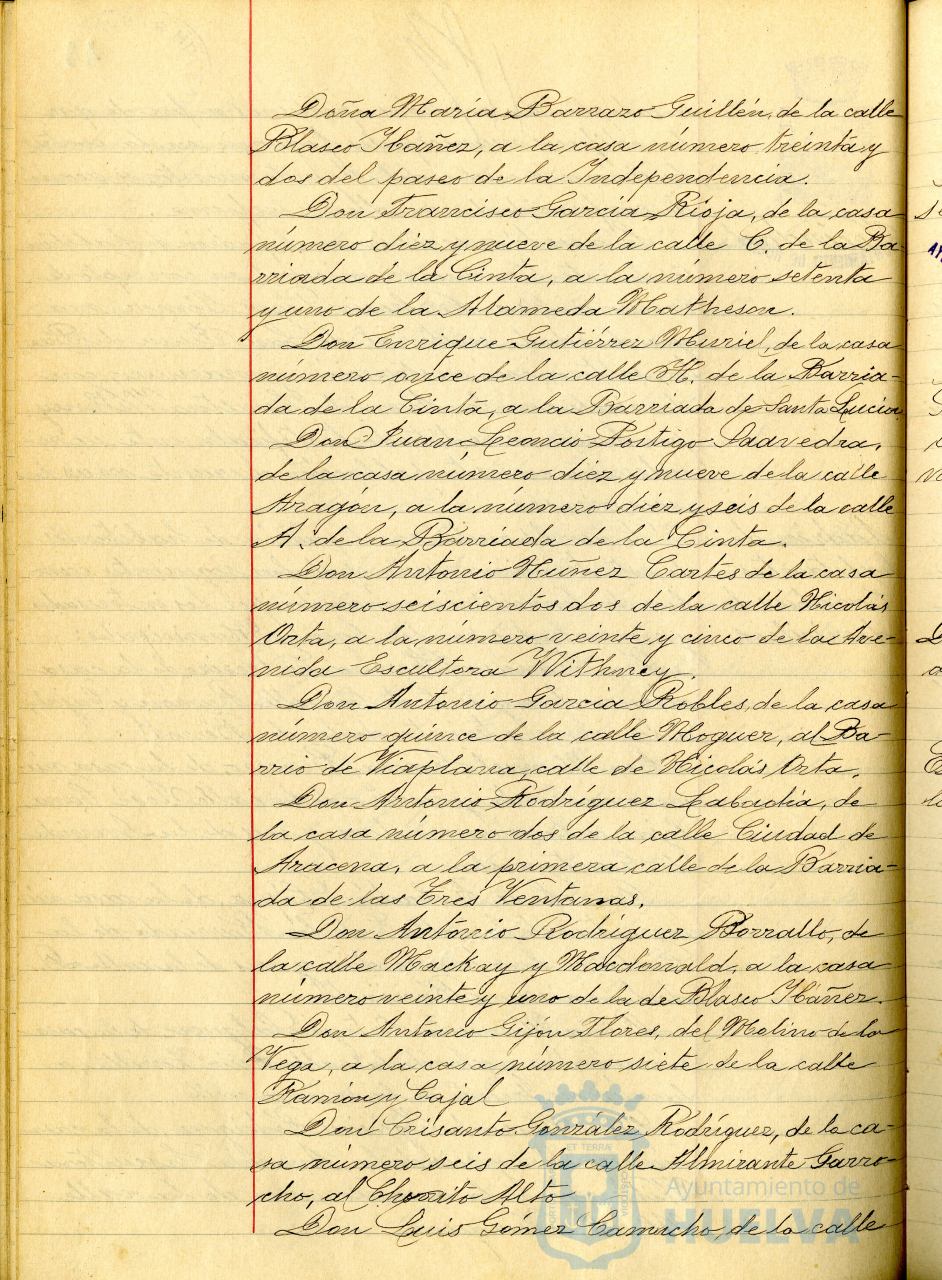 Doña María Barrazo Guillén, de la calle
Blasco Ibañez, a la casa número treinta y
dos del paseo de la Independencia.
Don Francisco García Rioja, de la casa
número diez y nueve de la calle C. de la Ba-
rriada de la Cinta, a la número setenta
y uno de la Alameda Matheson.
Don Enrique Gutiérrez Muriel, de la casa
número once de la calle H. de la Barria-
da de la Cinta, a la Barriada de Santa Lucia.
Don Juan Leoncio Portigo Saavedra,
de la casa número diez y nueve de la calle
Aragón, a la número diez y seis de la calle
A. de la Barriada de la Cinta.
Don Antonio Núñez Cartes de la casa
número seiscientos dos de la calle Nicolás
Orta, a la número veinte y cinco de la Ave-
nida Escultora Withney.
Don Antonio Garcia Robles, de la casa
número quince de la calle Moguer, al Ba-
rrio de Viaplana, calle de Nicolás Orta.
Don Antonio Rodríguez Labadía, de
la casa número dos de la calle Ciudad de
Aracena, a la primera calle de la Barria-
da de las Tres Ventanas.
Don Antonio Rodríguez Borrallo, de
la calle Mackay y Macdonald, a la casa
número veinte y uno de la de Blasco Ibáñez.
Don Antonio Gijón Flores, del Molino de la
Vega, a la casa número siete de la calle
Ramón y Cajal
Don Crisanto González Rodríguez, de la ca-
sa número seis de la calle Almirante Garro-
cho, al Chorrito Alto
Don Luis Gómez Camacho, de la calle
Ayuntamiento de
HUELVA